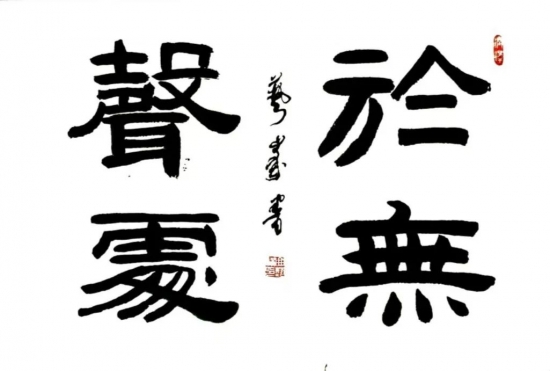 於無
聲處